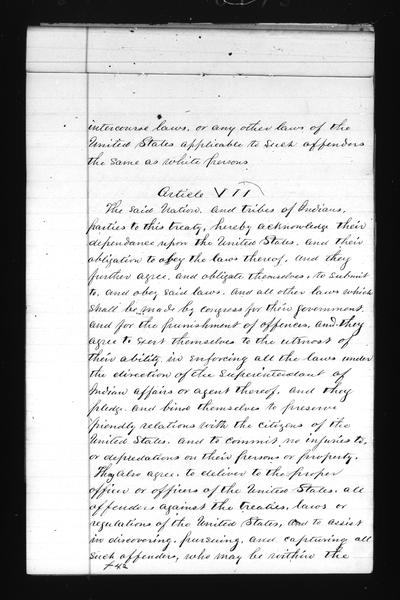 intercourse laws, or any other laws of the
United States applicable to such offenders
the same as white persons
Article VII
The said Nation, and tribes of Indians,
parties to this treaty, hereby acknowledge their
dependance upon the United States, and their
obligation to obey the laws thereof, And they
further agree, and obligate themselves, to submit
to, and obey said laws, and all other laws which
shall be made by congress for their government
and for the punishment of offences, and they
agree to exert themselves to the utmost of
their ability, in enforcing all the laws under
the direction of the Superintendant of
Indian affairs or agent thereof, and they
pledge and bind themselves to preserve
friendly relations with the citizens of the
United States, and to commit no injuries to,
or depredations on their persons or property.
They also agree to deliver to the proper
officer or officers of the United States, all
offenders against the treaties, laws or
regulations of the United States, and to assist
in discovering, pursuing, and capturing all
such offenders, who may be within the